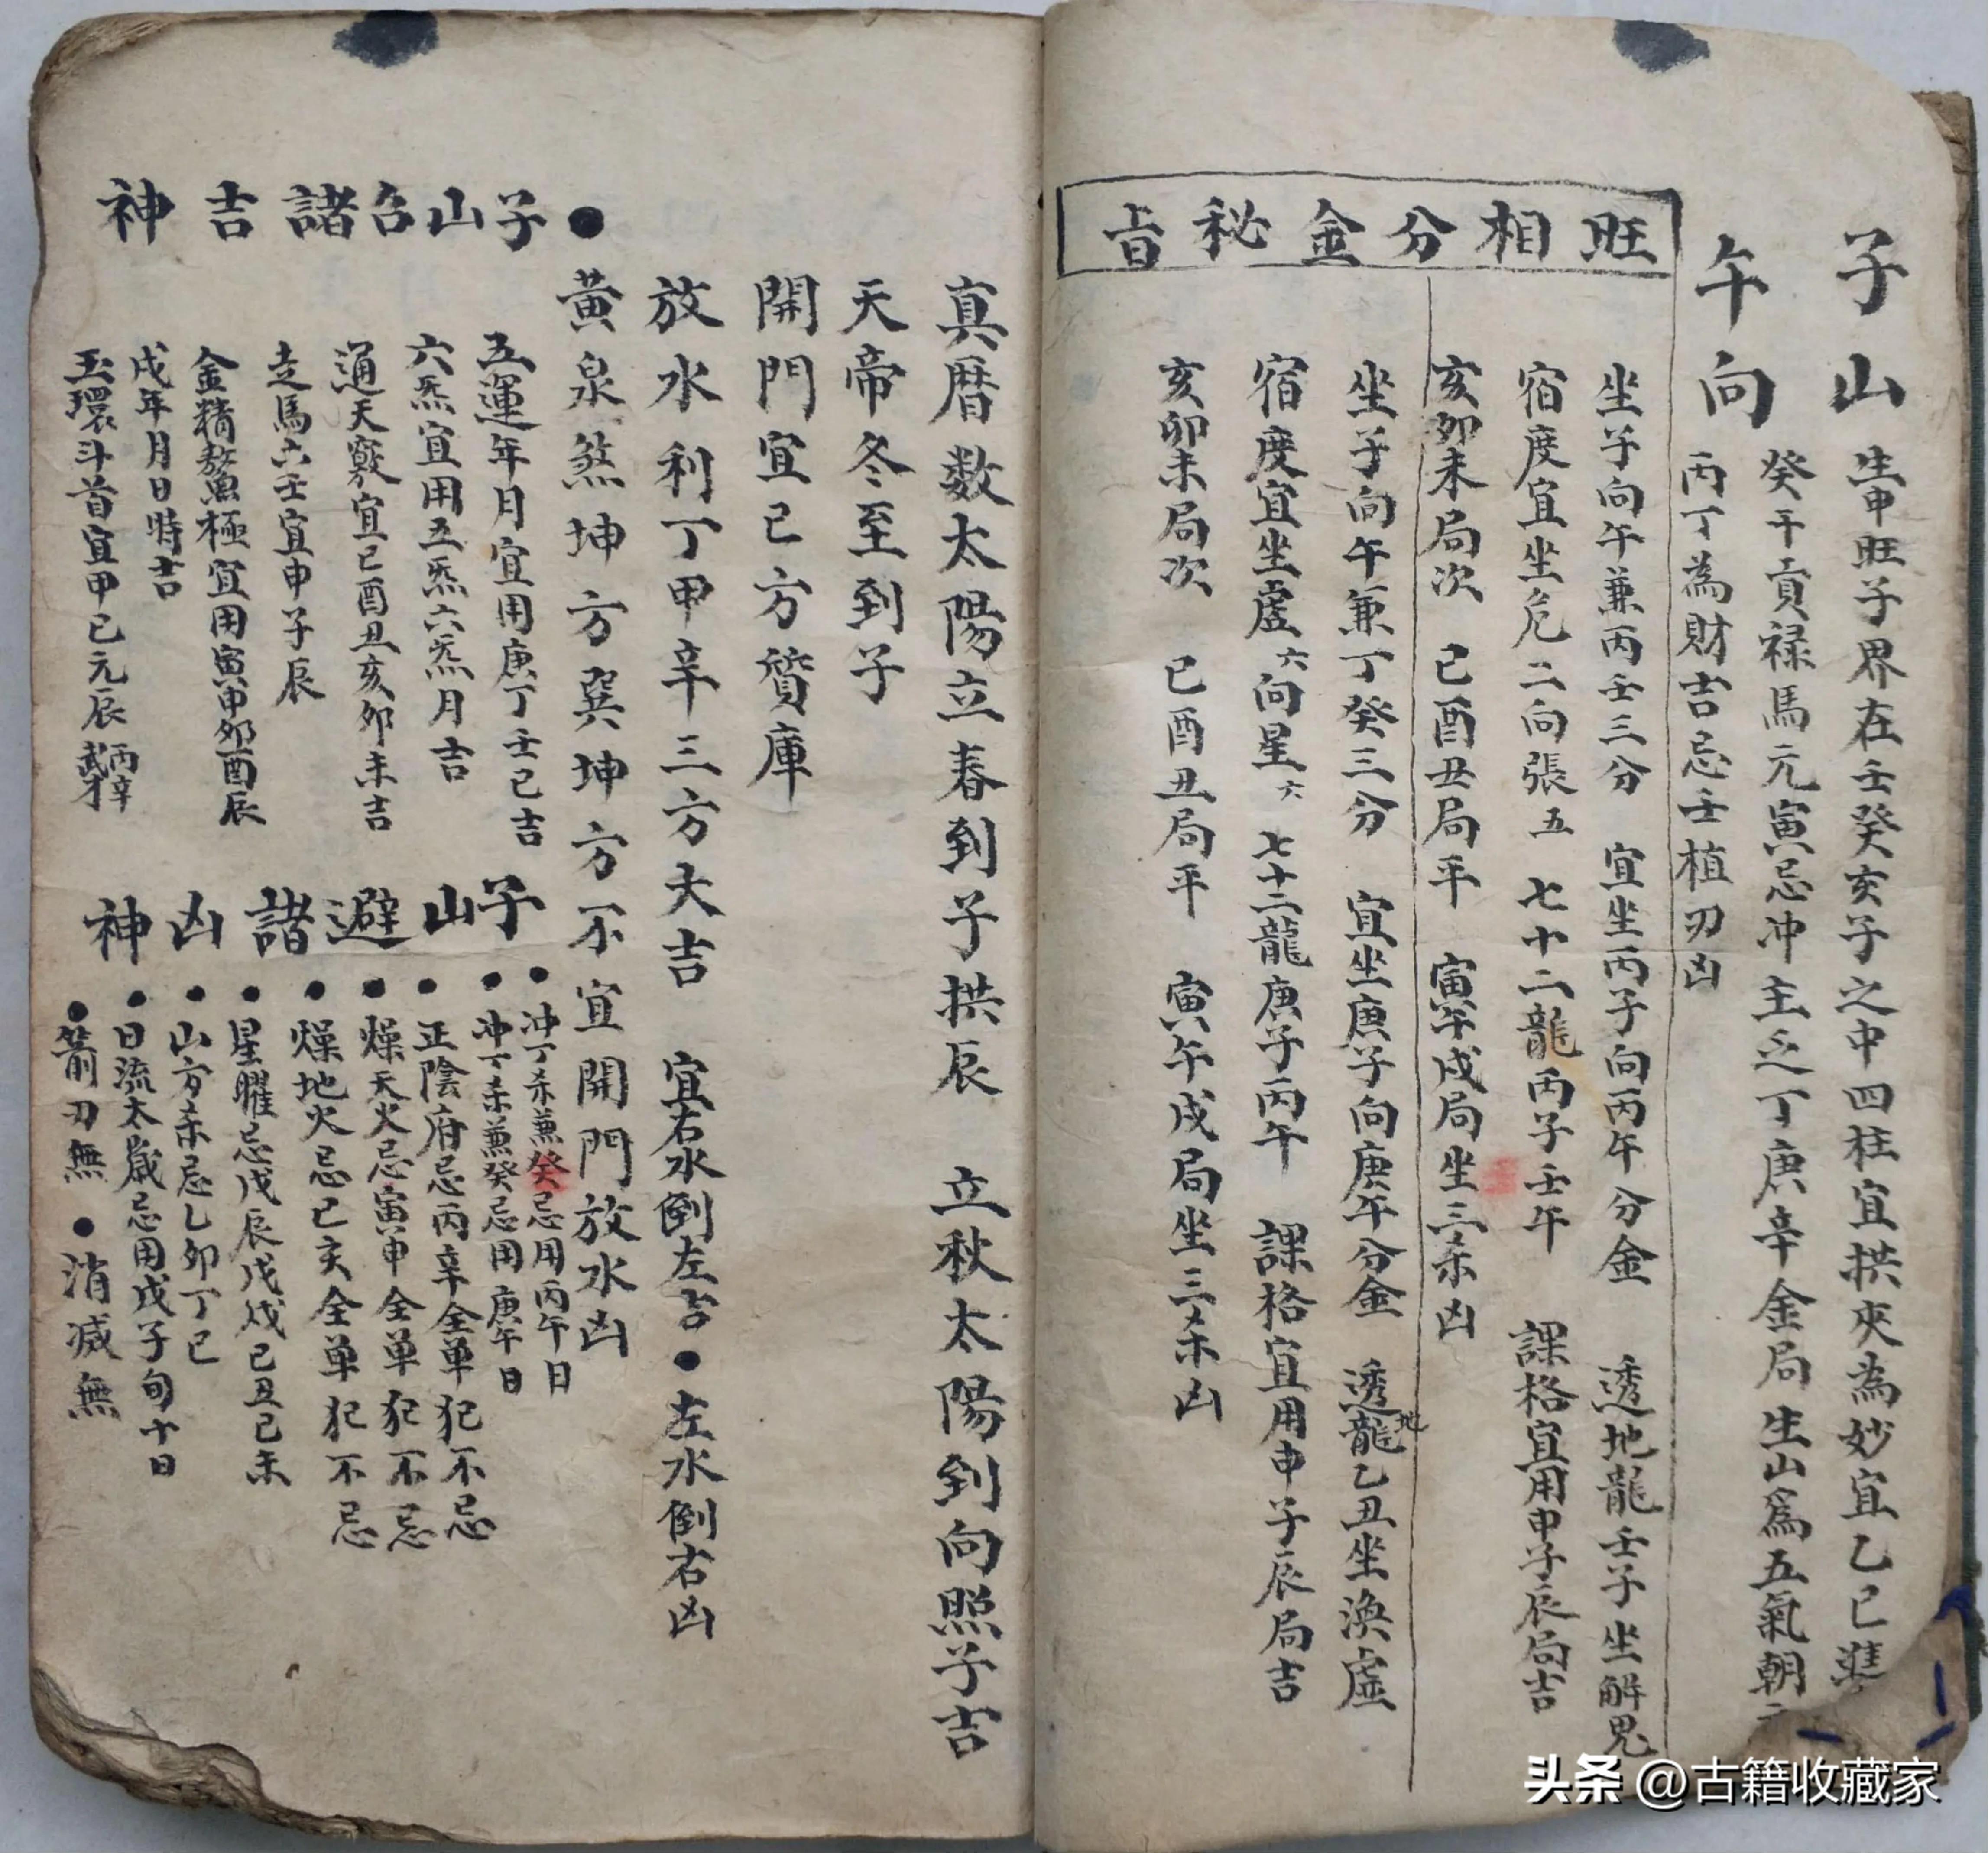 子山午向
生申旺子界在壬癸亥子之中四柱宜拱夾為妙宜乙巳
癸干貢祿馬元寅忌冲主乏丁庚辛金局生山為五氣朝
丙丁為財吉忌壬植刃凶
旺相分金秘旨
坐子向午兼丙壬三分 宜坐丙子向丙午分金 透地龍壬子坐解鬼
宿度宜坐危二向張五 七十二龍丙子壬午 課格宜用申子辰局吉
亥卯未局次 巳酉丑局平 寅午戌局坐三杀凶
坐子向午兼丁癸三分 宜坐庚子向庚午分金 透地龍乙丑坐渙虛
宿度宜坐虛六向星六 七十二龍庚子丙午 課格宜用申子辰局吉
亥卯未局次 巳酉丑局平 寅午戌局坐三杀凶
真曆数太陽立春到子拱辰 立秋太陽到向照子吉
天帝冬至到子
開門宜巳方貨庫
放水利丁甲辛三方大吉 宜右水倒左吉●左水倒右凶
黃泉煞坤方巽坤方不宜開門放水凶
●子山召諸吉神
五運年月宜用庚丁壬已吉
六炁宜用五炁六炁月吉
通天竅宜巳酉丑亥卯未吉
走馬六壬宜申子辰
金精鰲極宜用寅申卯酉辰
戌年月日時吉
玉環斗首宜甲已元辰丙辛武才
子山避諸凶神
●冲丁杀兼癸忌用丙午日
●冲丁杀兼癸忌用庚午日
●正陰府忌丙辛全單犯不忌
●燥天火忌寅申全單犯不忌
●燥地火忌巳亥全單犯不忌
●星曜忌戊辰戊戌已丑已未
●山方杀忌乚卯丁巳
●日流太歲忌用戊子旬十日
●箭刃無 ●消滅無
头条 @古籍收藏家